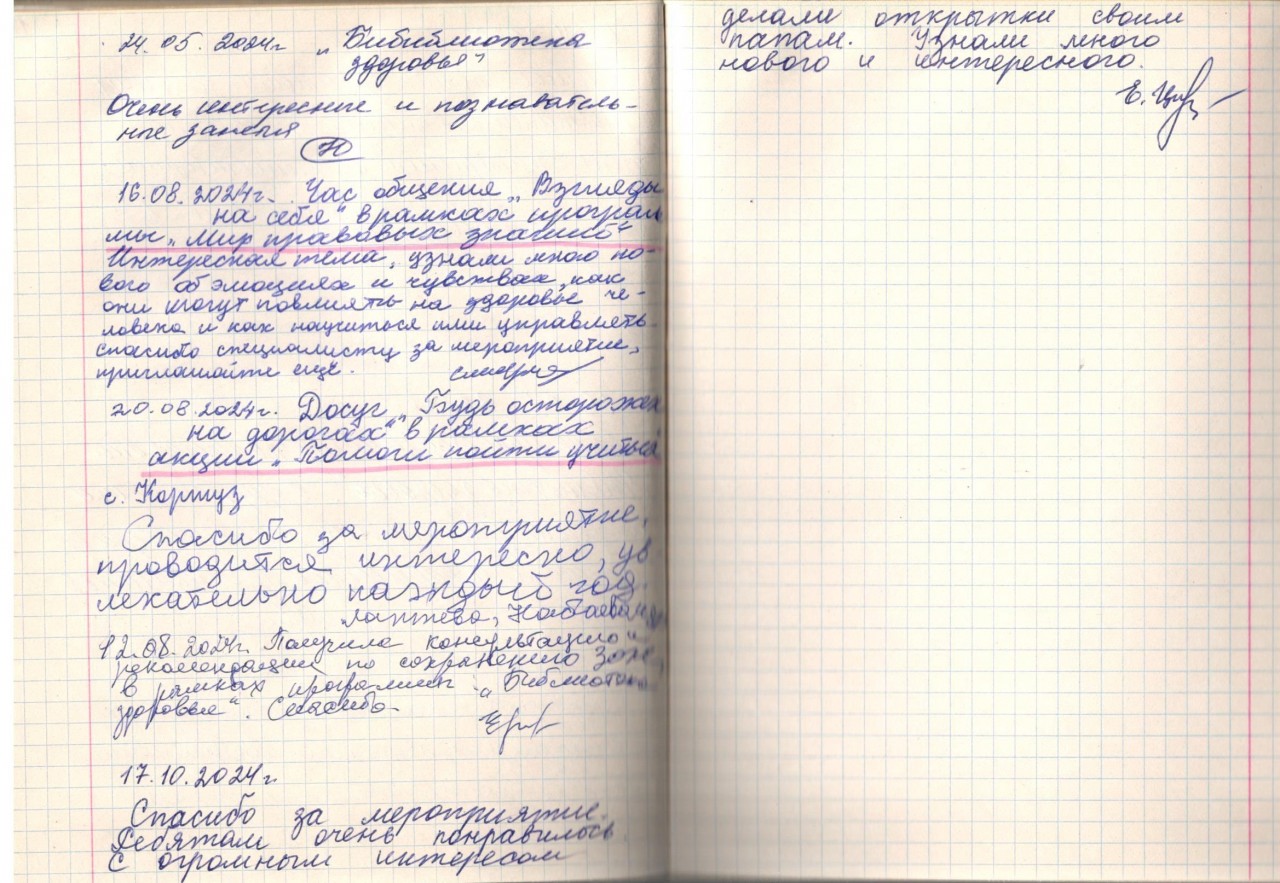 24.05.2024г „Бибиблиотека
здоровья"
Очень интересные и познаватель-
ные занятия
16.08.2024г. Час общения „Взгляды
на себя" в рамках програм
мы „Мир правовых знаний"
Интересная тема, узнали много но-
вого об эмоциях и чувствах, как
они могут повлиять на здоровье че-
ловека и как научиться ими управлять.
спасибо специалисту за мероприятие,
приглашайте ещё.
20.08.2024г. Досуг „Будь осторожен
на дорогах" в рамках
акции „Помоги пойти учиться
с. Картуз
Спасибо за мероприятие,
проводится интересно, ув
лекательно каждый год.
Лаптева,
12.08.2024г. Получила консультацию и
рекомендации по сохранению ЗОЖ,
в рамках программы „Библиотека
здоровья". Спасибо
17.10.2024г.
Спасибо за мероприятие.
Ребятам очень понравилось.
С огромным интересом
делали открытки своим
папам. Узнали много
нового и интересного.